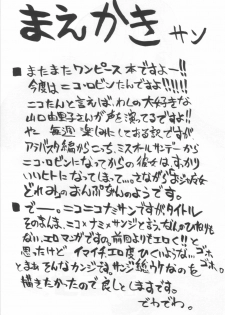 まえかき サン
■またまたワンピース本ですよー!!
今度はニコ・ロビンたんですよ!!!!!!
ニコたんと言えば、わしの大好きな
山口由里子さんが声を演てるですよ!!
やー 毎週楽しみにしてある訳ですが
アラバスタ編からこっち、ミスオールサンデーから
ニコ・ロビンになってからの彼女は、すっかり
いいヒトになってしまって…、さながらおジャ魔女
どれみのおんぷちゃんのようです。
■でー。ニコニコナミサンですがタイトル
そのまんま、ニコ×ナミ×サンジという、なんのひねりも
ない、エロマンガです。前回よりエロく!!と
思ったけど イマイチエロ度ひくいような…、ゴホ、ゴホ。
とまあそんなカンジです。サンジ総ウケなのを
描きたかったので良しとしますです。
でわでわ。